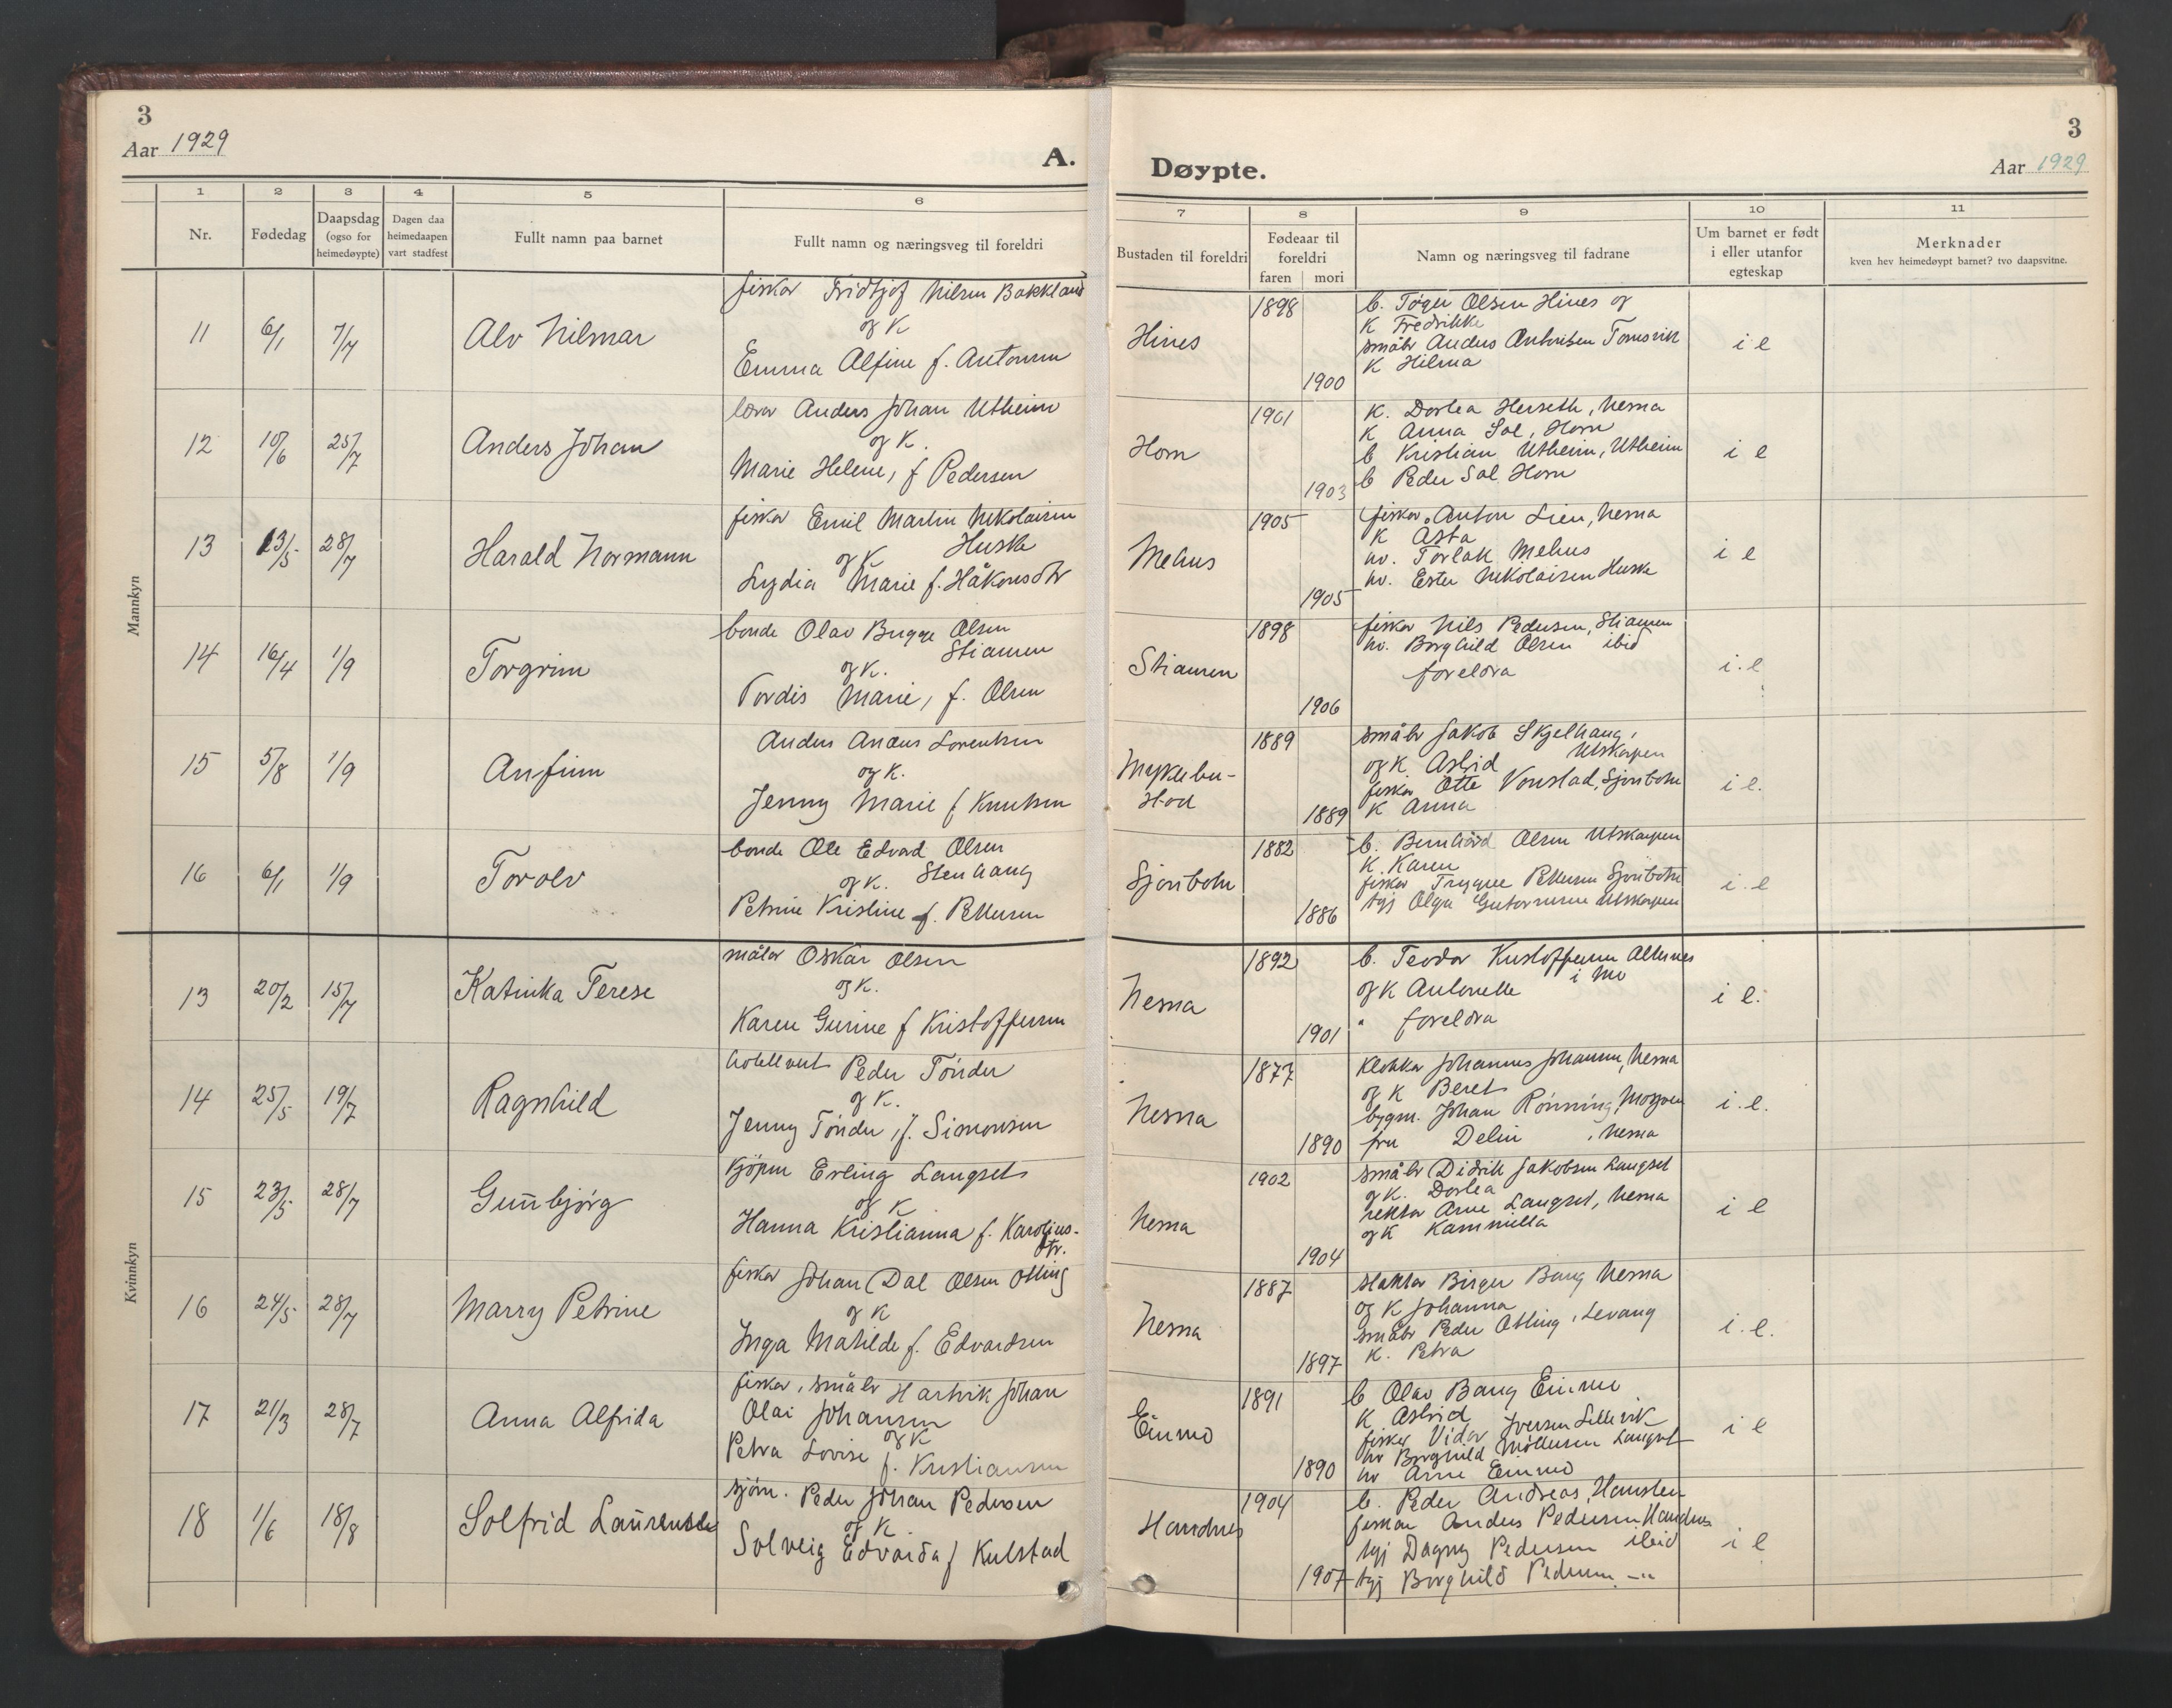 3
Aar 1929
A.
1 2 3 4 5 6
Nr. Fødedag Daapsdag (ogso for heimedøypte) Dagen daa heimedaapen vart stadfest Fullt namn paa barnet Fullt namn og næringsveg til foreldri
Mannkyn
11 6/1 7/7 Alv Hilmar
fiskar Fridtjof Nilsen Bakkland
og K
Emma Alfine f. Antonsen
12 10/6 25/7 Anders Johan
lærar Anders Johan Utheim
og K.
Marie Helene, f Pedersen
13 13/5 28/7 Harald Normann
fiskar Emil Martin Nikolaisen
Huske
og K
Lydia Marie f. Håkonsdtr
14 16/4 1/9 Torgrim
bonde Olav Bugge Olsen
Stiansen
og K.
Tordis Marie, f. Olsen
15 5/8 1/9 Anfinn
Anders Anæus Lorentsen
og K.
Jenny Marie f Knutsen
16 6/1 1/9 Torolv
bonde Ole Edvard Olsen
og K. Stenhaug
Petrine Kristine f. Pettersen
Kvinnkyn
13 20/2 15/7 Katinka Terese
målar Oskar Olsen
og K.
Karen Gurine f Kristoffersen
14 25/5 19/7 Ragnhild
hotellvert Peder Tönder
og K.
Jenny Tönder, f. Simonsen
15 23/5 28/7 Gunnbjörg
Kjöpm Erling Langset
og K
Hanna Kristianna f. Karolius-
dtr.
16 24/5 28/7 Marry Petrine
fiskar Johan Dal Olsen Otting
og K
Inga Matilde f. Edvardsen
17 21/3 28/7 Anna Alfrida
fiskar, småbr Hartvik Johan
Olai Johansen
og K
Petra Lovise f. Kristiansen
18 1/6 18/8 Solfrid Laurentse
sjöm. Peder Johan Pedersen
og K
Solveig Edvarda f Kulstad
3
Døypte.
Aar 1929
7 8 9 10 11
Bustaden til foreldri Fødeaar til foreldri faren mori Namn og næringsveg til fadrane Um barnet er født i eller utanfor egteskap Merknader kven hev heimedøypt barnet? tvo daapsvitne.
Hines 1898 1900 i e
b. Töger Olsen Hines og
K Fredrikke
småbr Anders Antonisen Tomsvik
K Hilma
Horn 1901 1903 i e
K. Dortea Herseth, Nesna
K Anna Sol, Horn
b Kristian Utheim, Utheim
b Peder Sol Horn
Mehus 1905 1905 i e
fiskar Anton Lien, Nesna
K Asta
uv. Torlak Mehus
uv. Ester Nikolaisen Huske
Stiansen 1898 1906 i.e
fiskar Nils Pedersen, Stiansen
uv. Borghild Olsen ibid
foreldra
Myklebu-
stad 1889 1889 i e.
småbr Jakob Skjelhaug,
og K Astrid Utskarpen
fiskar Otte Vonstad, Sjonbotn
K Anna
Sjonbotn 1882 1886 i.e
b. Bernhard Olsen Utskarpen
K. Karen
fiskar Trygve Pettersen Sjonbotn
tyj Olga Gustavsen Utskarpen
Nesna 1892 1901 i e.
b. Teodor Kristoffersen Alternes
og K Antonette i Mo
" foreldra
Nesna 1877 1890 i.e.
Klokkar Johannes Johansen, Nesna
og K Beret
bygm. Johan Rönning, Mosjøen
fru Delin, Nesna
Nesna 1902 1904 i e
småbr Didrik Jakobsen Langset
og K. Dortea
rektor Arne Langset, Nesna
og K Kammilla
Nesna 1887 1897 i.e.
slaktar Birger Bang Nesna
og K Johanna
småbr Peder Otting, Levang
K. Petra
Einmo 1891 1890 i e
b Olav Bang Einmo
K Astrid
fiskar Vidar Iversen Lillevik
uv Borghild Möllersen Langset
uv Arne Einmo
Handnes 1904 1907 i e
b. Peder Andreas, Hamsten
fiskar Anders Pedersen Handnes
tyj Dagny Pedersen ibid
tyj Borghild Pedersen -"